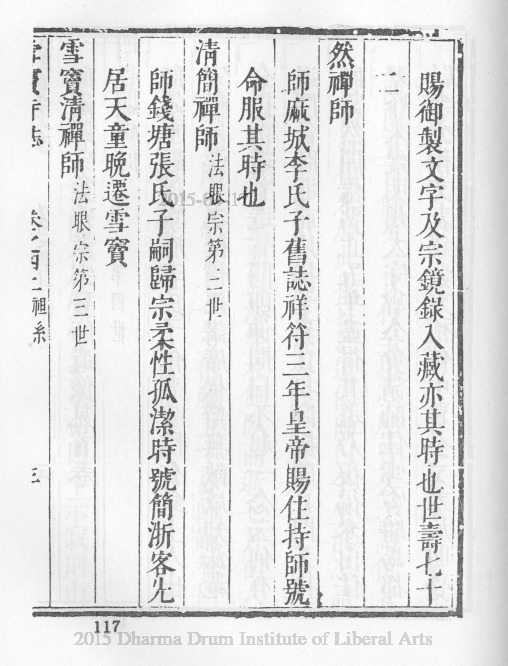 賜御製文字及宗鏡錄入藏亦其時也世壽七十
二
然禪師
師麻城李氏子舊誌祥符三年皇帝賜住持師號
命服其時也
清簡禪師法眼宗第三世
師錢塘張氏子嗣歸宗柔性孤潔時號簡浙客先
居天童晚遷雪竇
雪竇清禪師法眼宗第三世
雪竇寺誌 卷之四上 祖系 三
117
2015 Dharma Drum Institute of Liberal Arts